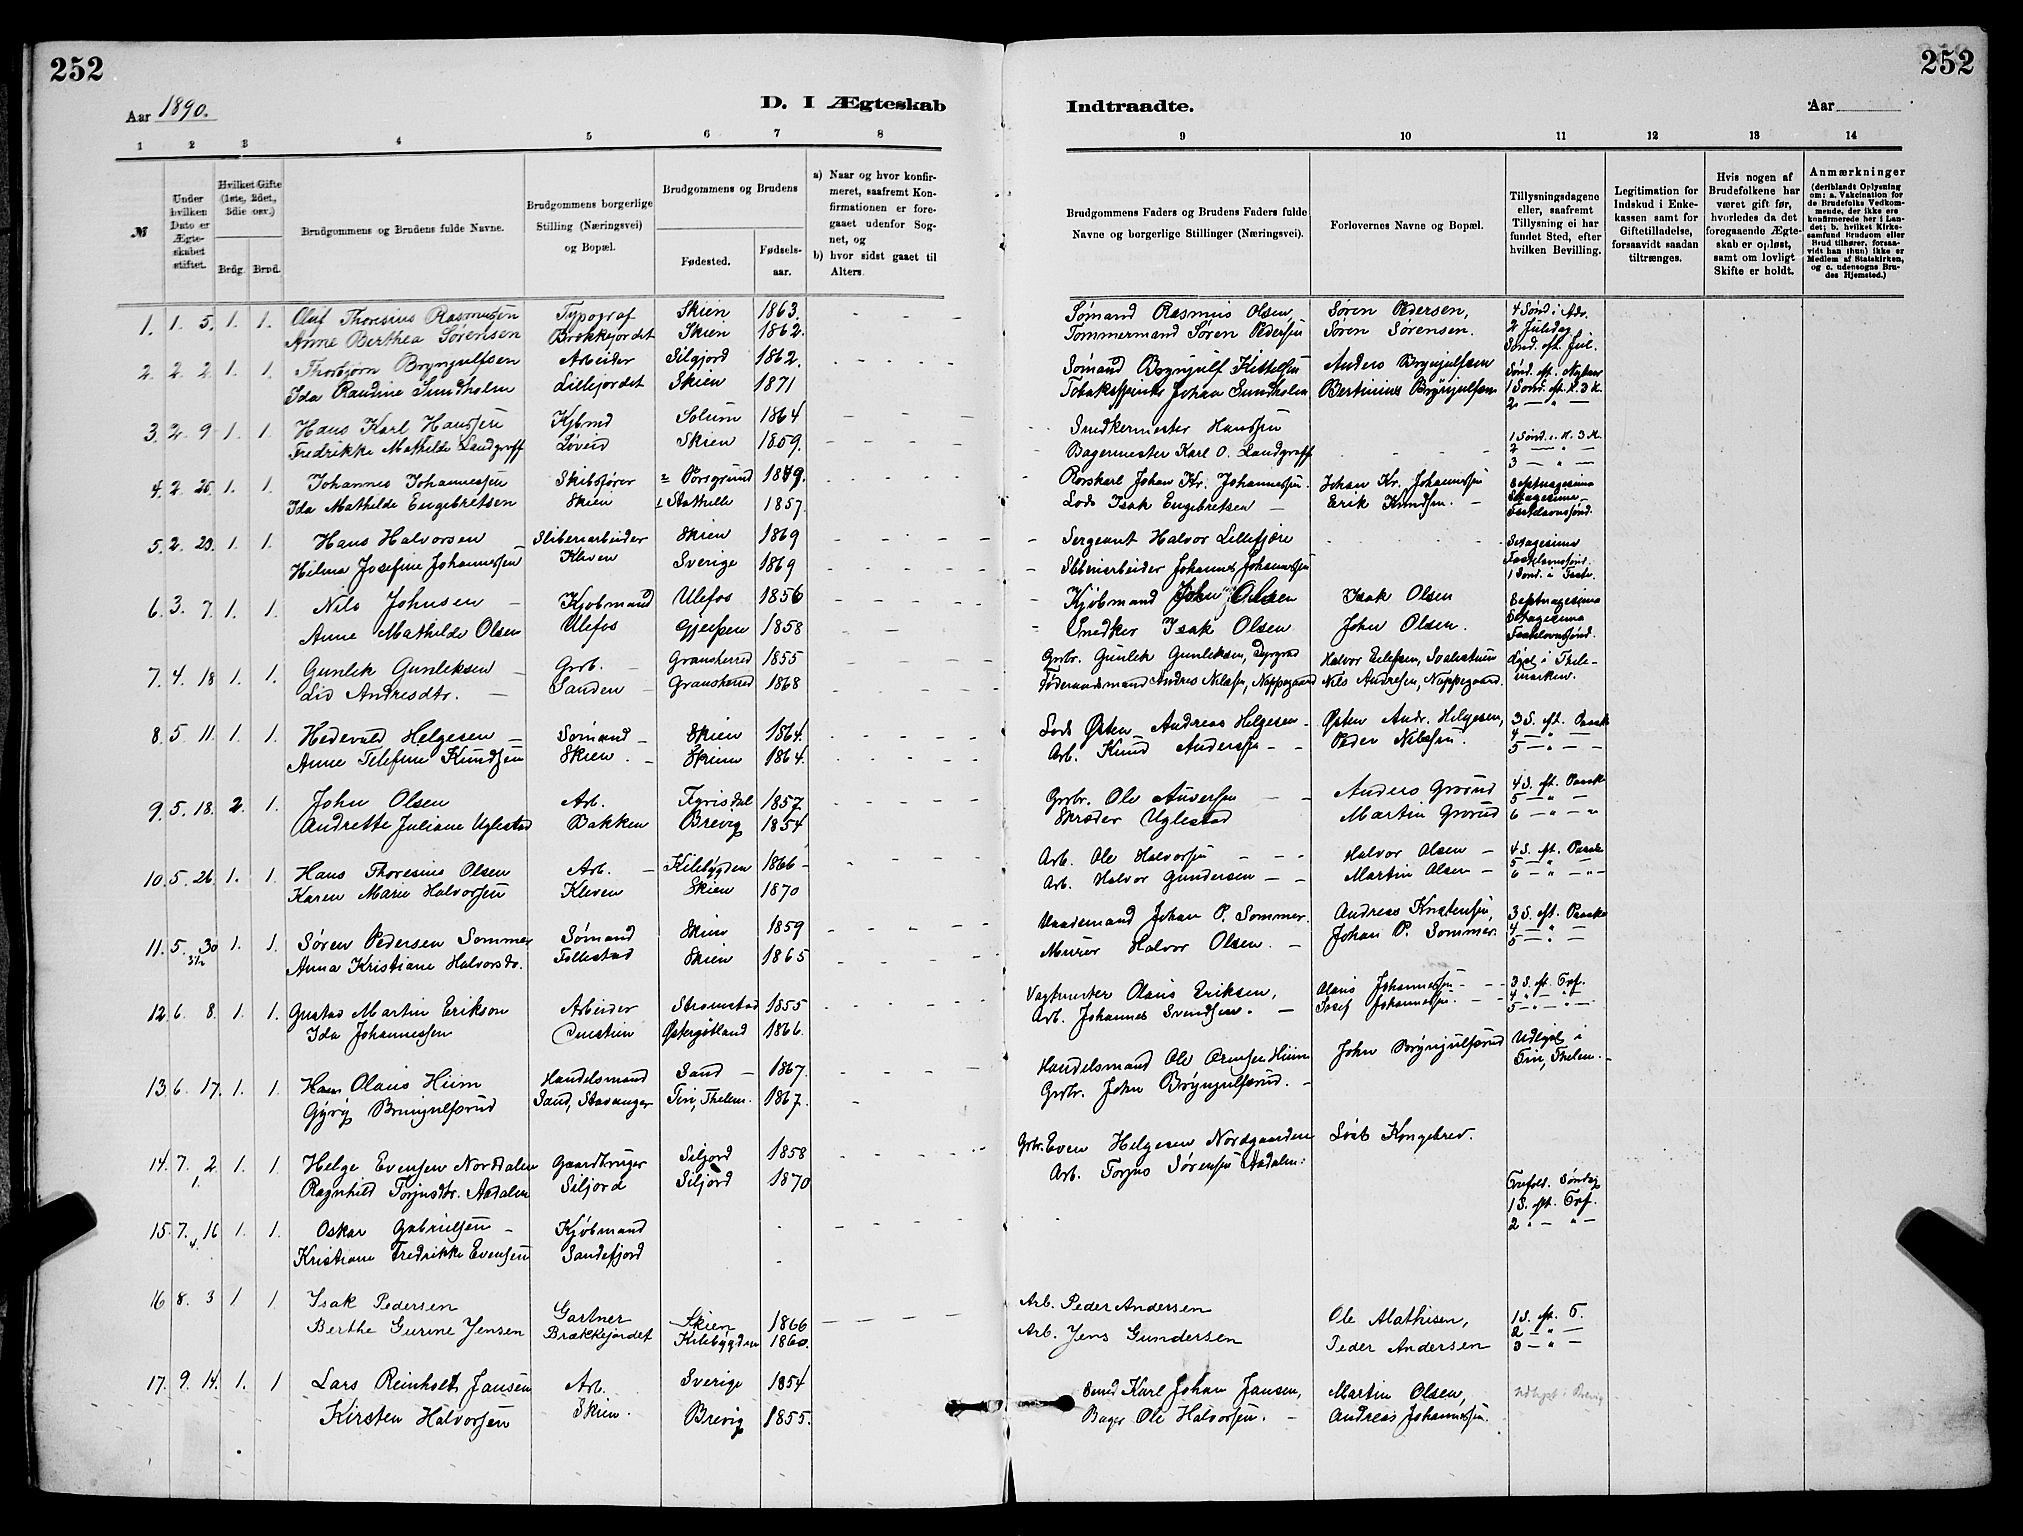 252
252
Aar 1890.
D. I Ægteskab
Indtraadte.
Aar
1 2 3 4 5 6 7 8
9 10 11 12 13 14
№
Under hvilken Dato er Ægteskabet stiftet.
Hvilket Gifte (1ste, 2det, 3die osv.)
Brdg. Brud.
Brudgommens og Brudens fulde Navne.
Brudgommens borgerlige Stilling (Næringsvei) og Bopæl.
Brudgommens og Brudens
Fødested.
Fødselsaar.
a) Naar og hvor konfirmeret, saafremt Konfirmationen er foregaaet udenfor Sognet, og
b) hvor sidst gaaet til Alters.
Brudgommens Faders og Brudens Faders fulde Navne og borgerlige Stillinger (Næringsvei).
Forlovernes Navne og Bopæl.
Tillysningsdagene eller, saafremt Tillysning ei har fundet Sted, efter hvilken Bevilling.
Legitimation for Indskud i Enkekassen samt for Giftetilladelse, forsaavidt saadan tiltrænges.
Hvis nogen af Brudefolkene har været gift før, hvorledes da det foregaaende Ægteskab er opløst, samt om lovligt Skifte er holdt.
Anmærkninger
(deriblandt Oplysning om: a. Vakcination for de Brudefolks Vedkommende, der ikke ere konfirmerede her i Landet; b. hvilket Kirkesamfund Brudgom eller Brud tilhører, forsaavidt han (hun) ikke er Medlem af Statskirken, og c. udensogns Brudes Hjemsted.)
1. 1. 5. 1. 1. Oluf Thoresius Rasmussen Typograf Skien 1863. Sømand Rasmus Olsen, Søren Pedersen, 4 Sønd. i Adv.
Anne Berthea Sørensen Brækkejordet Skien 1862. Tømmermand Søren Pedersen Søren Sørensen. 2 Juledag
Sønd. eft. Jul.
2. 2. 2. 1. 1. Thorbjørn Brynjulfsen Arbeider Silgjord 1862. Sømand Brynjulf Kittelsen Anders Brynjulfsen Sønd. eft. Nytaar
Ida Randine Sundholm Lillejordet Skien 1871 Johan Sundholm Bertinius Brynjulfsen 1 Sønd. eft. H. 3 K.
2 — " —
3. 2. 9. 1. 1. Hans Karl Hanssen Kjbmd Solum 1864 Snedkermester Hanssen
Fredrikke Mathilde Landgraff Løveid Skien 1859. Bagermester Karl O. Landgraff 1 Sønd. e. H. 3 K.
2 — " —
3 — " —
4. 2. 25. 1. 1. Johannes Johannessen Skibsfører Porsgrund 1849. Johan Kr. Johannessen. Johan Kr. Johannessen Septuagesima
Ida Mathilde Engebretsen Skien Stathelle 1857. Lods Isak Engebretsen Erik Knudsen. Sexagesima
Fastelavnssønd.
5. 2. 23. 1. 1. Hans Halvorsen Sliberiarbeider Skien 1869 Sergeant Halvor Lillefjære Sexagesima
Hilma Josefine Johannessen Kleven Sverige 1869 Sliberiarbeider Johannes Johannessen Fastelavnssønd.
1 Sønd. i Faste.
6. 3. 7. 1. 1. Nils Johnsen Kjøbmand Ulefos 1856 Kjøbmand John Olsen Isak Olsen Septuagesima
Anne Mathilde Olsen Ulefos Gjerpen 1858 Snedker Isak Olsen John Olsen. Sexagesima
Fastelavnssønd.
7. 4. 18. 1. 1. Gunlek Gunleksen Grb. Gransherred 1855 Grbr. Gunlek Gunleksen, Halvor Eilefsen, Lyst i Thele-
Liv Andresdtr. Sanden Gransherred 1868 Føderaadsmand Andres Nilssen, Noppegaard Nils Andresen, Noppegaard. marken.
8. 5. 11. 1. 1. Hedevald Helgesen Sømand Skien 1864. Lods Østen Andreas Helgesen Østen Andr. Helgesen, 3 S. eft. Paaske
Anne Telefine Knudsen Skien. Skien 1864. Arb. Knud Anderssen Peder Nilssen. 4 — " —
5 — " —
9. 5. 18. 2. 1. John Olsen Arb. Fyrisdal 1857. Grbr. Ole Auversen Anders Grorud 4 S. eft. Paaske
Andrette Juliane Uglestad Bakken Brevig 1854 Skræder Uglestad Martin Grorud 5 — " —
6 — " —
10. 5. 26. 1. 1. Hans Thoresius Olsen Arb. Kilebygden 1866 Arb. Ole Halvorsen Halvor Olsen 4 S. eft. Paaske
Karen Marie Halvorsen Kleven Skien 1870 Arb. Halvor Gundersen Martin Olsen 5 — " —
6 — " —
11. 5. 30 1. 1. Søren Pedersen Sommer Sømand Skien 1859 Johan P. Sommer. Andreas Knutensen, 3 S. eft. Paaske
Anna Kristiane Halvorsdr. Follestad Skien 1865 Murer Halvor Olsen. Johan P. Sommer. 4 — " —
5 — " —
12. 6. 8. 1. 1. Gustav Martin Erikson Arbeider Strømstad 1855 Vagtmester Olaus Eriksen, Olaus Johannessen 3 S. eft. Tref.
Ida Johannessen Østergøtland 1866. Arb. Johannes Svendsen. Josef Johannessen 4 — " —
5 — " —
13. 6. 17. 1. 1. Hans Olaus Hiim Handelsmand Sand 1867. Handelsmand Ole Ormsen Hiim John Brynjulfsrud Udlyst i
Gyrøy Brunjulfsrud Sand, Stavanger Tin, Thelem. 1867. Grbr. John Brynjulfsrud. Tin, Thelem.
14. 7. 2. 1. 1. Helge Evensen Norddalen Gaardbruger Siljord 1858 Grbr. Even Helgesen Nordgaarden Løst Kongebrev.
Ragnhild Torjusdtr. Aadalen Siljord Siljord 1870 Arb. Torjus Sørensen Aadalen.
15. 7. 16 1. 1. Oskar Gabrielsen Kjøbmand Trefold. Søndag
Kristiane Fredrikke Evensen Sandefjord 1 S. eft. Tref.
2 " — " —
16 8. 3 1 1. Isak Pedersen Gartner Skien 1866 Arb. Peder Andersen Ole Mathisen, 1 S. eft. T.
Berthe Gurine Jensen Brækkejordet Kilebygden 1860. Arb. Jens Gundersen Peder Andersen 2 — " —
3 — " —
17. 9. 14. 1. 1 Lars Reinholt Jansen Arb. Sverige 1854 Smed Karl Johan Jansen, Martin Olsen, Udlyst i Brevig
Kirsten Halvorsen Skien. Brevig 1855. Bager Ole Halvorsen. Andreas Johannessen.